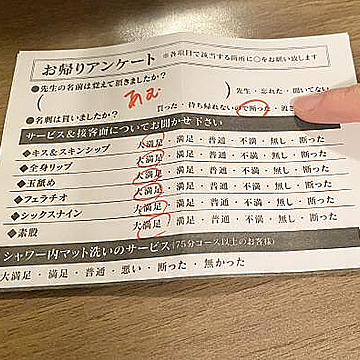 お帰りアンケート ※各項目で該当する箇所に○をお願い致します
◆先生の名前は覚えて頂きましたか?
( あむ )先生・忘れた・聞いてない
◆名刺は貰いましたか? 貰った・持ち帰れないので断った・
サービス&接客面についてお聞かせ下さい
◆キス&スキンシップ 大満足・満足・普通・不満・無し・断った
◆全身リップ 大満足・満足・普通・不満・無し・断った
◆玉舐め 大満足・満足・普通・不満・無し・断った
◆フェラチオ 大満足・満足・普通・不満・無し・断った
◆シックスナイン 大満足・満足・普通・不満・無し・断った
◆素股 大満足・満足・普通・不満・無し・断った
シャワー内マット洗いのサービス(75分コース以上のお客様)
大満足・満足・普通・悪い・断った・無かった